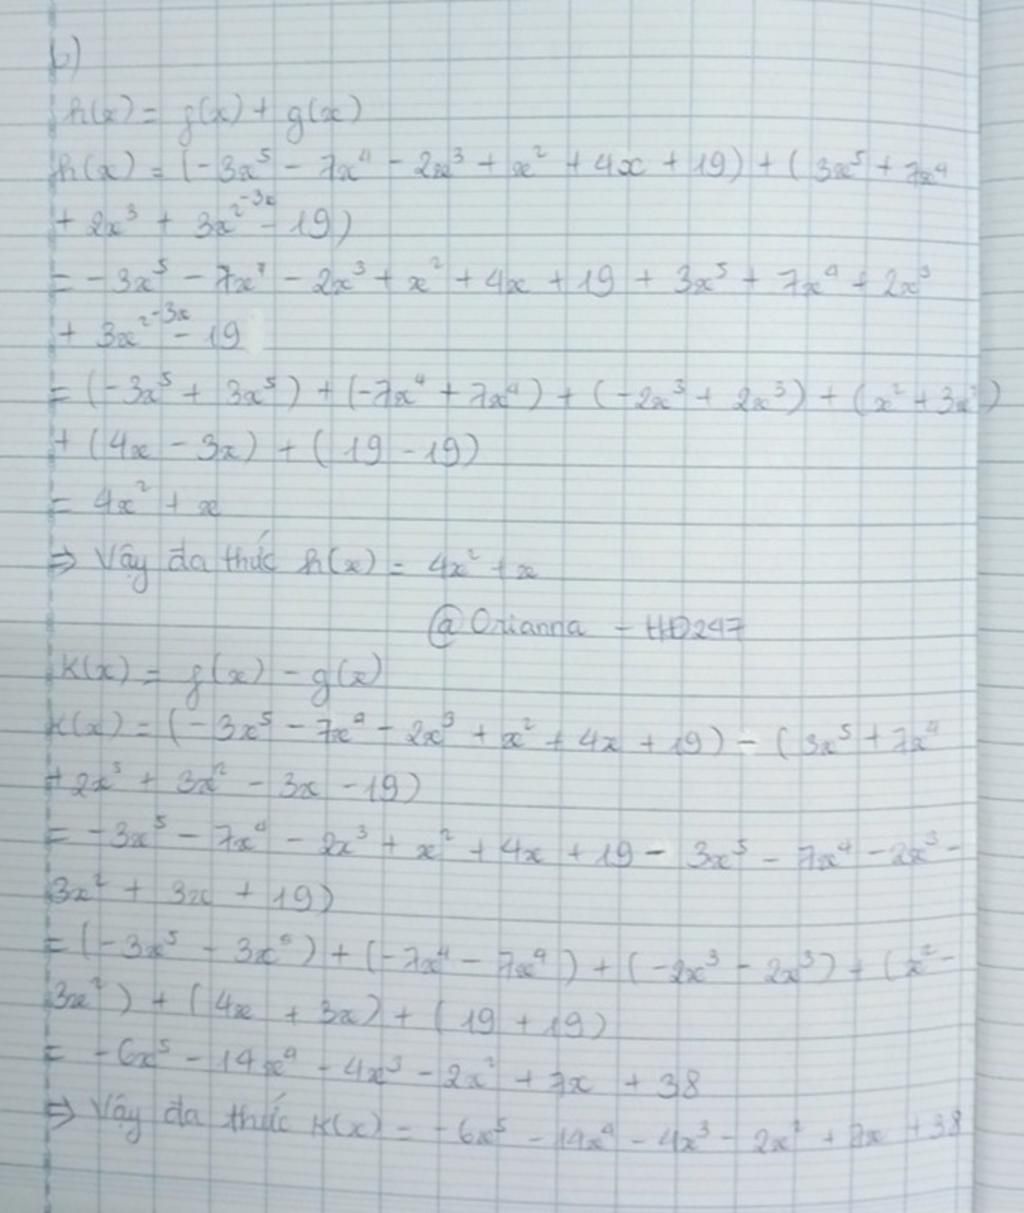 b)
h(x) = f(x) + g(x)
h(x) = (-3x⁵ - 7x⁴ - 2x³ + x² + 4x + 19) + (3x⁵ + 7x⁴
+ 2x³ + 3x² - 3x - 19)
= -3x⁵ - 7x⁴ - 2x³ + x² + 4x + 19 + 3x⁵ + 7x⁴ + 2x³
+ 3x² - 3x - 19
= (-3x⁵ + 3x⁵) + (-7x⁴ + 7x⁴) + (-2x³ + 2x³) + (x² + 3x²)
+ (4x - 3x) + (19 - 19)
= 4x² + x
⇒ Vậy đa thức h(x) = 4x² + x
@Orianna - HD247
K(x) = f(x) - g(x)
K(x) = (-3x⁵ - 7x⁴ - 2x³ + x² + 4x + 19) - (3x⁵ + 7x⁴
+ 2x³ + 3x² - 3x - 19)
= -3x⁵ - 7x⁴ - 2x³ + x² + 4x + 19 - 3x⁵ - 7x⁴ - 2x³ -
3x² + 3x + 19)
= (-3x⁵ - 3x⁵) + (-7x⁴ - 7x⁴) + (-2x³ - 2x³) + (x² -
3x²) + (4x + 3x) + (19 + 19)
= -6x⁵ - 14x⁴ - 4x³ - 2x² + 7x + 38
⇒ Vậy đa thức K(x) = -6x⁵ - 14x⁴ - 4x³ - 2x² + 7x + 38